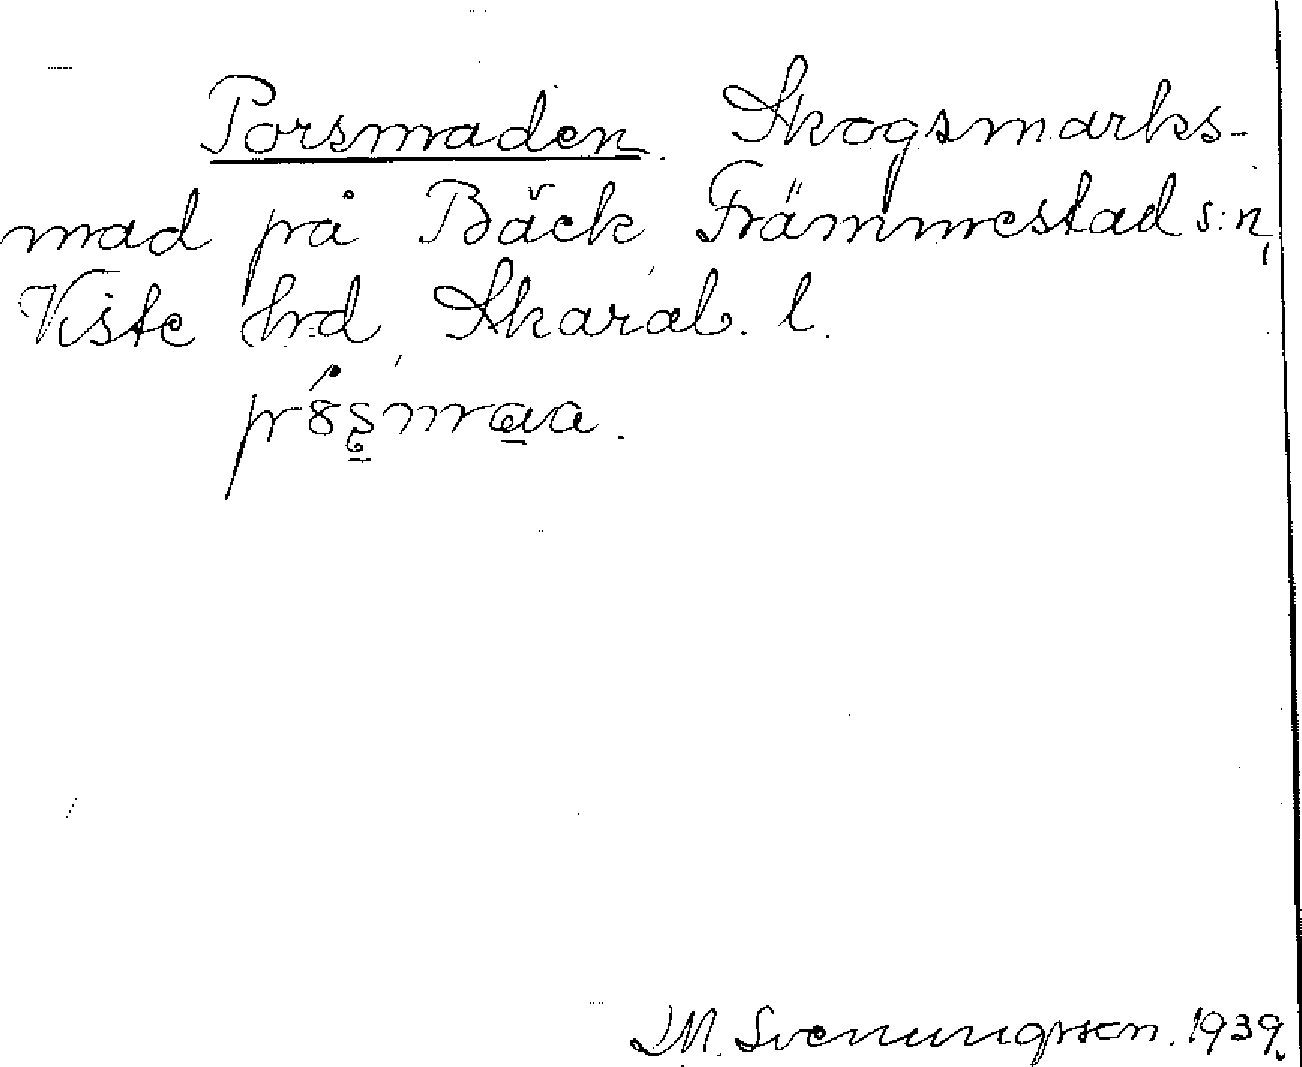 Porsmaden. Skogsmarks-
mad på Bäck, Främmestad s:n,
Viste hrd, Skarab. l.
J.M. Svenungsson. 1939.